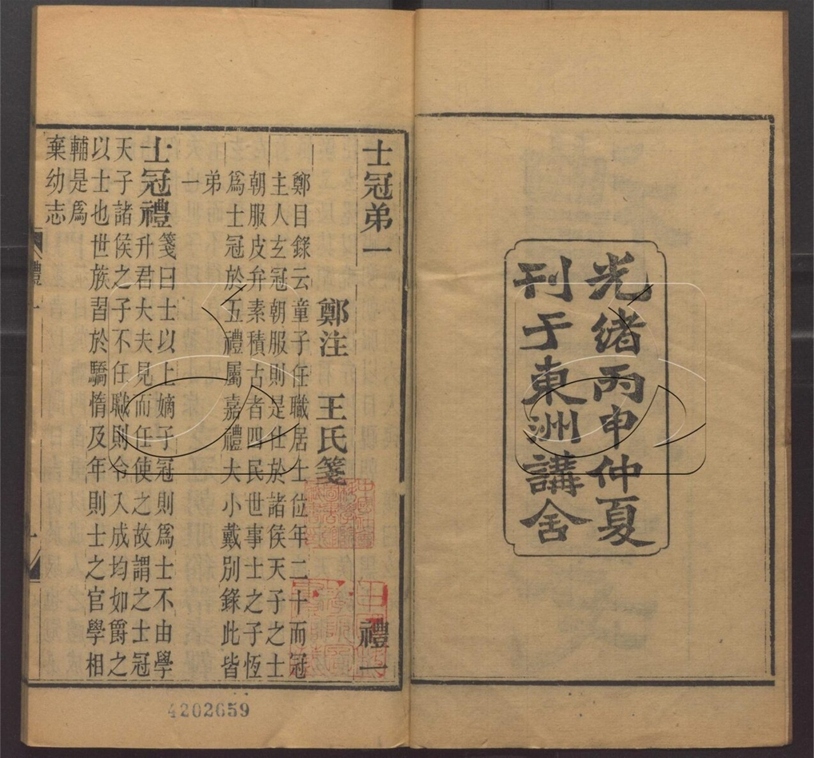 光緒丙申仲夏
刊于東洲講舍
士冠弟一
鄭注 王氏箋 禮一
鄭目錄云童子任職居士位年二十而冠
主人玄冠朝服則是仕於諸侯天子之士
朝服皮弁素積古者四民世事士之子恆
爲士冠於五禮屬嘉禮大小戴別錄此皆
弟一
士冠禮箋曰士以上嫡子冠則爲士不由學
升君大夫見而任使之故謂之士冠
天子諸侯之子不任職則令入成均如爵之
以士也世族習於驕惰及年則士之官學相
輔是爲
棄幼志
禮一
一
4202659